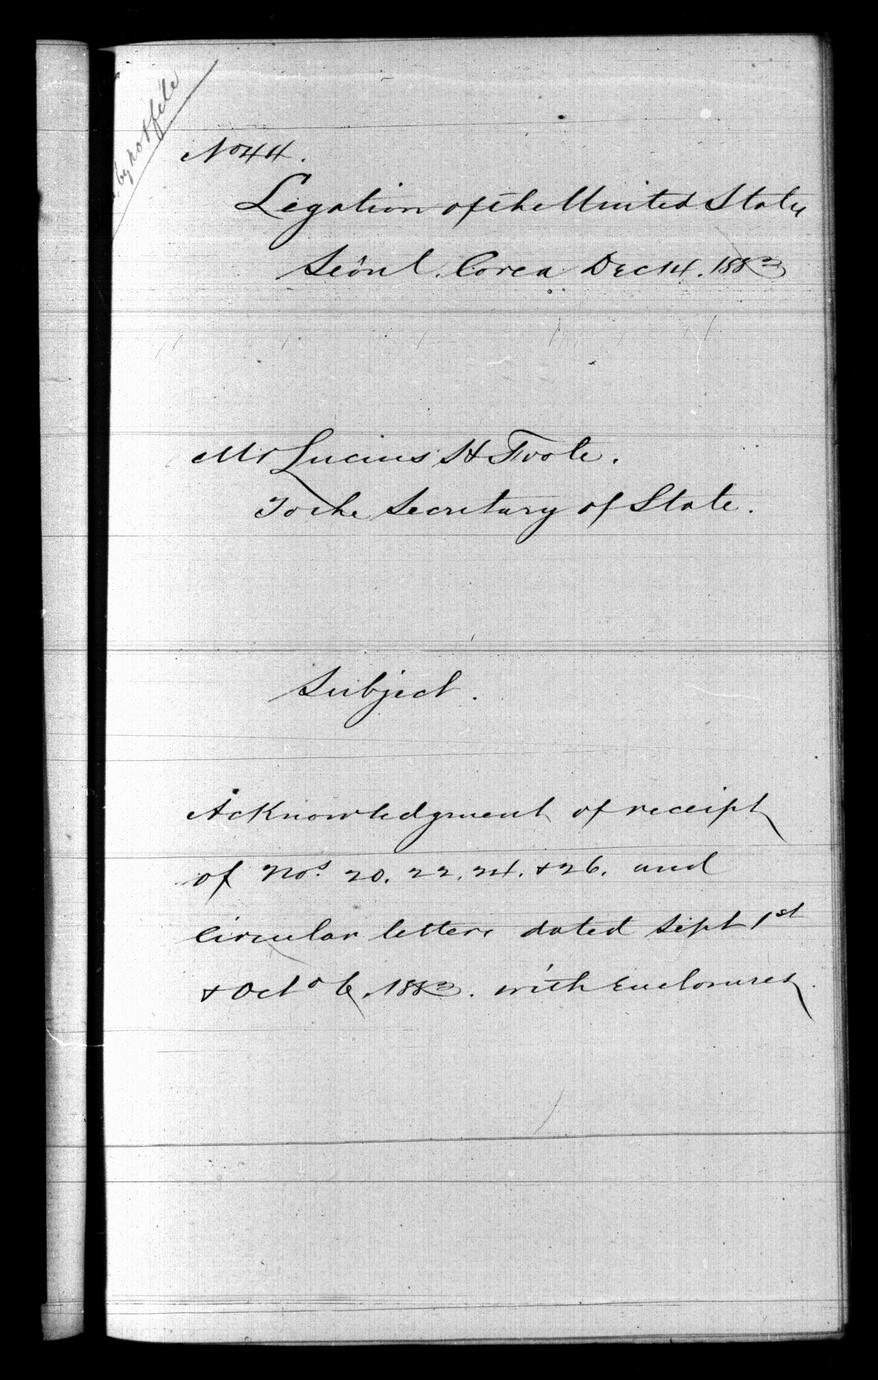 by not file
No 44.
Legation of the United States
Seoul. Corea Dec 14. 1883
Mr Lucius H Foote.
To the Secretary of State.
Subject.
Acknowledgment of receipt
of Nos. 20. 22. 24. & 26. and
Circular letters dated Sept 1st
& Octo 6. 1883. with Enclosures.